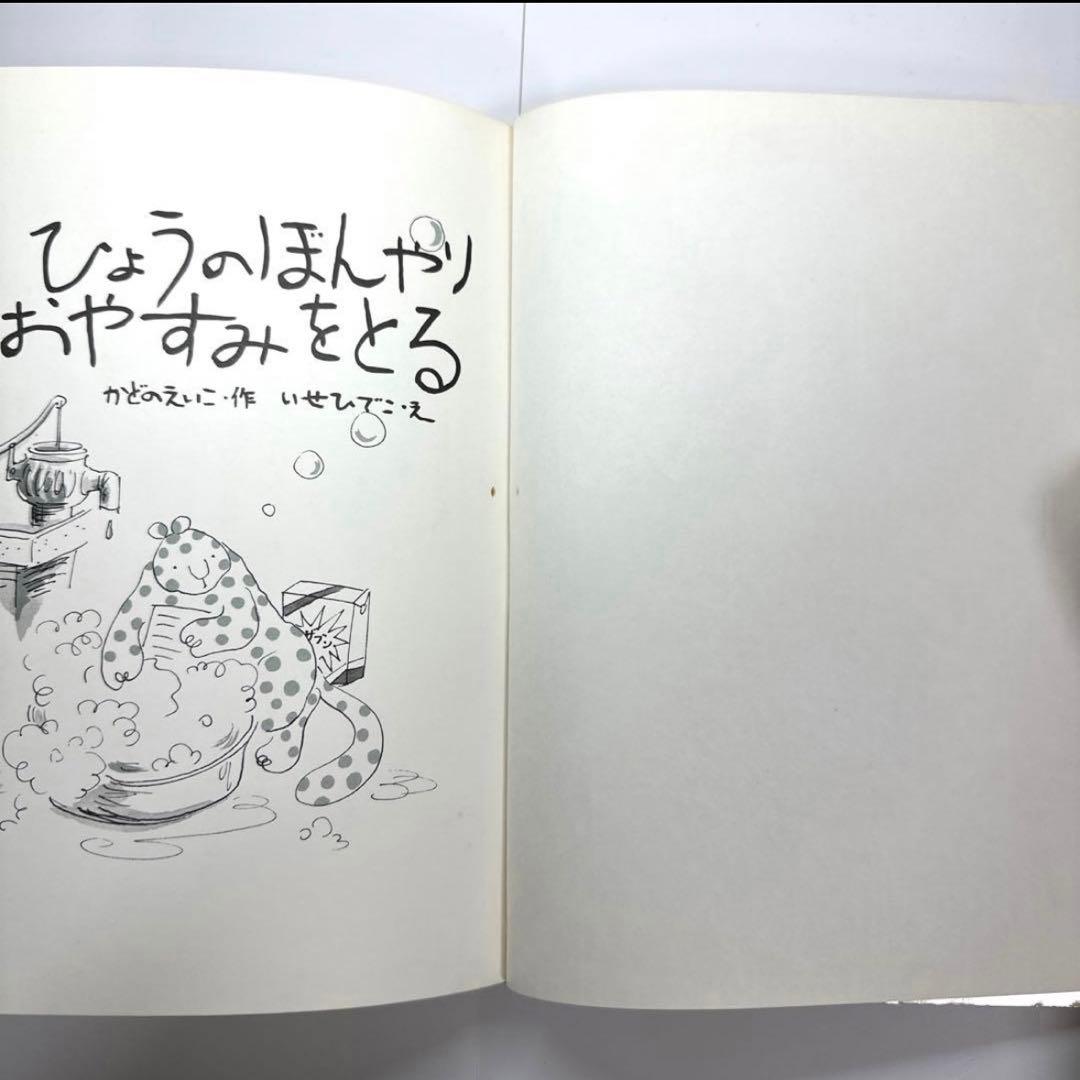 ひょうのぼんやり
おやすみをとる
かどのえいこ・作 いせひでこ・え
ザブン